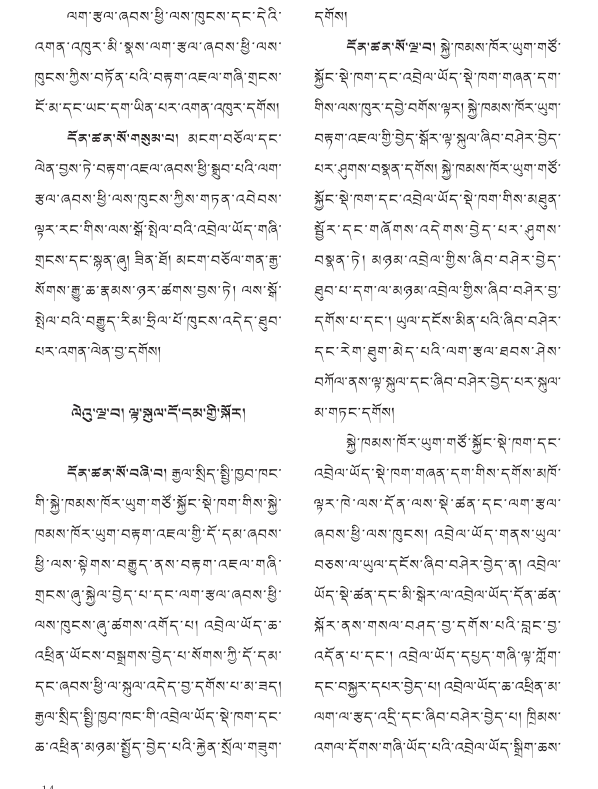 ལག་རྩལ་ཞབས་ཕྱི་ལས་ཁུངས་དང་དེའི་
འགན་འཁུར་མི་སྣས་ལག་རྩལ་ཞབས་ཕྱི་ལས་
ཁུངས་ཀྱིས་བཏོན་པའི་བརྟག་འཇལ་གཞི་གྲངས་
ངོ་མ་དང་ཡང་དག་ཡིན་པར་འགན་འཁུར་དགོས།
དོན་ཚན་སོ་གསུམ་པ། མངག་བཅོལ་དང་
ལེན་བྱས་ཏེ་བརྟག་འཇལ་ཞབས་ཕྱི་སྒྲུབ་པའི་ལག་
རྩལ་ཞབས་ཕྱི་ལས་ཁུངས་ཀྱིས་གཏན་འབེབས་
ལྟར་རང་གིས་ལས་སྒོ་སྤེལ་བའི་འབྲེལ་ཡོད་གཞི་
གྲངས་དང་སྙན་ཞུ། ཟིན་ཐོ། མངག་བཅོལ་གན་རྒྱ་
སོགས་རྒྱུ་ཆ་རྣམས་ཉར་ཚགས་བྱས་ཏེ། ལས་སྒོ་
སྤེལ་བའི་བརྒྱུད་རིམ་ཧྲིལ་པོ་ཁུངས་འདེད་ཐུབ་
པར་འགན་ལེན་བྱ་དགོས།
ལེའུ་ལྔ་བ། ལྟ་སྐུལ་དོ་དམ་གྱི་སྐོར།
དོན་ཚན་སོ་བཞི་བ། རྒྱལ་སྲིད་སྤྱི་ཁྱབ་ཁང་
གི་སྐྱེ་ཁམས་ཁོར་ཡུག་གཙོ་སྐྱོང་སྡེ་ཁག་གིས་སྐྱེ་
ཁམས་ཁོར་ཡུག་བརྟག་འཇལ་གྱི་དོ་དམ་ཞབས་
ཕྱི་ལས་སྟེགས་བརྒྱུད་ནས་བརྟག་འཇལ་གཞི་
གྲངས་ཞུ་སྐྱེལ་བྱེད་པ་དང་ལག་རྩལ་ཞབས་ཕྱི་
ལས་ཁུངས་ཞུ་ཚགས་འགོད་པ། འབྲེལ་ཡོད་ཆ་
འཕྲིན་ཡོངས་བསྒྲགས་བྱེད་པ་སོགས་ཀྱི་དོ་དམ་
དང་ཞབས་ཕྱི་ལ་སྐུལ་འདེད་བྱ་དགོས་པ་མ་ཟད།
རྒྱལ་སྲིད་སྤྱི་ཁྱབ་ཁང་གི་འབྲེལ་ཡོད་སྡེ་ཁག་དང་
ཆ་འཕྲིན་མཉམ་སྤྱོད་བྱེད་པའི་རྐྱེན་སྲོལ་གཟུག་
དགོས།
དོན་ཚན་སོ་ལྔ་བ། སྐྱེ་ཁམས་ཁོར་ཡུག་གཙོ་
སྐྱོང་སྡེ་ཁག་དང་འབྲེལ་ཡོད་སྡེ་ཁག་གཞན་དག་
གིས་ལས་ཁུར་དབྱེ་བགོས་ལྟར། སྐྱེ་ཁམས་ཁོར་ཡུག་
བརྟག་འཇལ་གྱི་བྱེད་སྒོར་ལྟ་སྐུལ་ཞིབ་བཤེར་བྱེད་
པར་ཤུགས་བསྣན་དགོས། སྐྱེ་ཁམས་ཁོར་ཡུག་གཙོ་
སྐྱོང་སྡེ་ཁག་དང་འབྲེལ་ཡོད་སྡེ་ཁག་གིས་མཐུན་
སྦྱོར་དང་གཞོགས་འདེགས་བྱེད་པར་ཤུགས་
བསྣན་ཏེ། མཉམ་འབྲེལ་གྱིས་ཞིབ་བཤེར་བྱེད་
ཐུབ་པ་དག་ལ་མཉམ་འབྲེལ་གྱིས་ཞིབ་བཤེར་བྱ་
དགོས་པ་དང་། ཡུལ་དངོས་མིན་པའི་ཞིབ་བཤེར་
དང་རེག་ཐུག་མེད་པའི་ལག་རྩལ་ཐབས་ཤེས་
བཀོལ་ནས་ལྟ་སྐུལ་དང་ཞིབ་བཤེར་བྱེད་པར་སྐུལ་
མ་གཏང་དགོས།
སྐྱེ་ཁམས་ཁོར་ཡུག་གཙོ་སྐྱོང་སྡེ་ཁག་དང་
འབྲེལ་ཡོད་སྡེ་ཁག་གཞན་དག་གིས་དགོས་མཁོ་
ལྟར་ཁེ་ལས་དོན་ལས་སྡེ་ཚན་དང་ལག་རྩལ་
ཞབས་ཕྱི་ལས་ཁུངས། འབྲེལ་ཡོད་གནས་ཡུལ་
བཅས་ལ་ཡུལ་དངོས་ཞིབ་བཤེར་བྱེད་ན། འབྲེལ་
ཡོད་སྡེ་ཚན་དང་མི་སྒེར་ལ་འབྲེལ་ཡོད་དོན་ཚན་
སྐོར་ནས་གསལ་བཤད་བྱ་དགོས་པའི་བླང་བྱ་
འདོན་པ་དང་། འབྲེལ་ཡོད་དཔྱད་གཞི་ལྟ་ཀློག་
དང་བསྐྱར་དཔར་བྱེད་པ། འབྲེལ་ཡོད་ཆ་འཕྲིན་མ་
ལག་ལ་རྩད་འདྲི་དང་ཞིབ་བཤེར་བྱེད་པ། ཁྲིམས་
འགལ་དོགས་གཞི་ཡོད་པའི་འབྲེལ་ཡོད་སྒྲིག་ཆས་